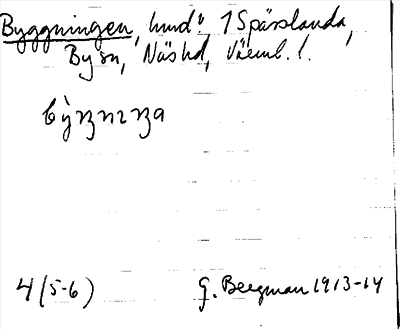 Byggningen, hmd. 1 Spässlanda,
By sn, Näs hd, Värml. l.
4 (5-6) G. Bergman 1913-14